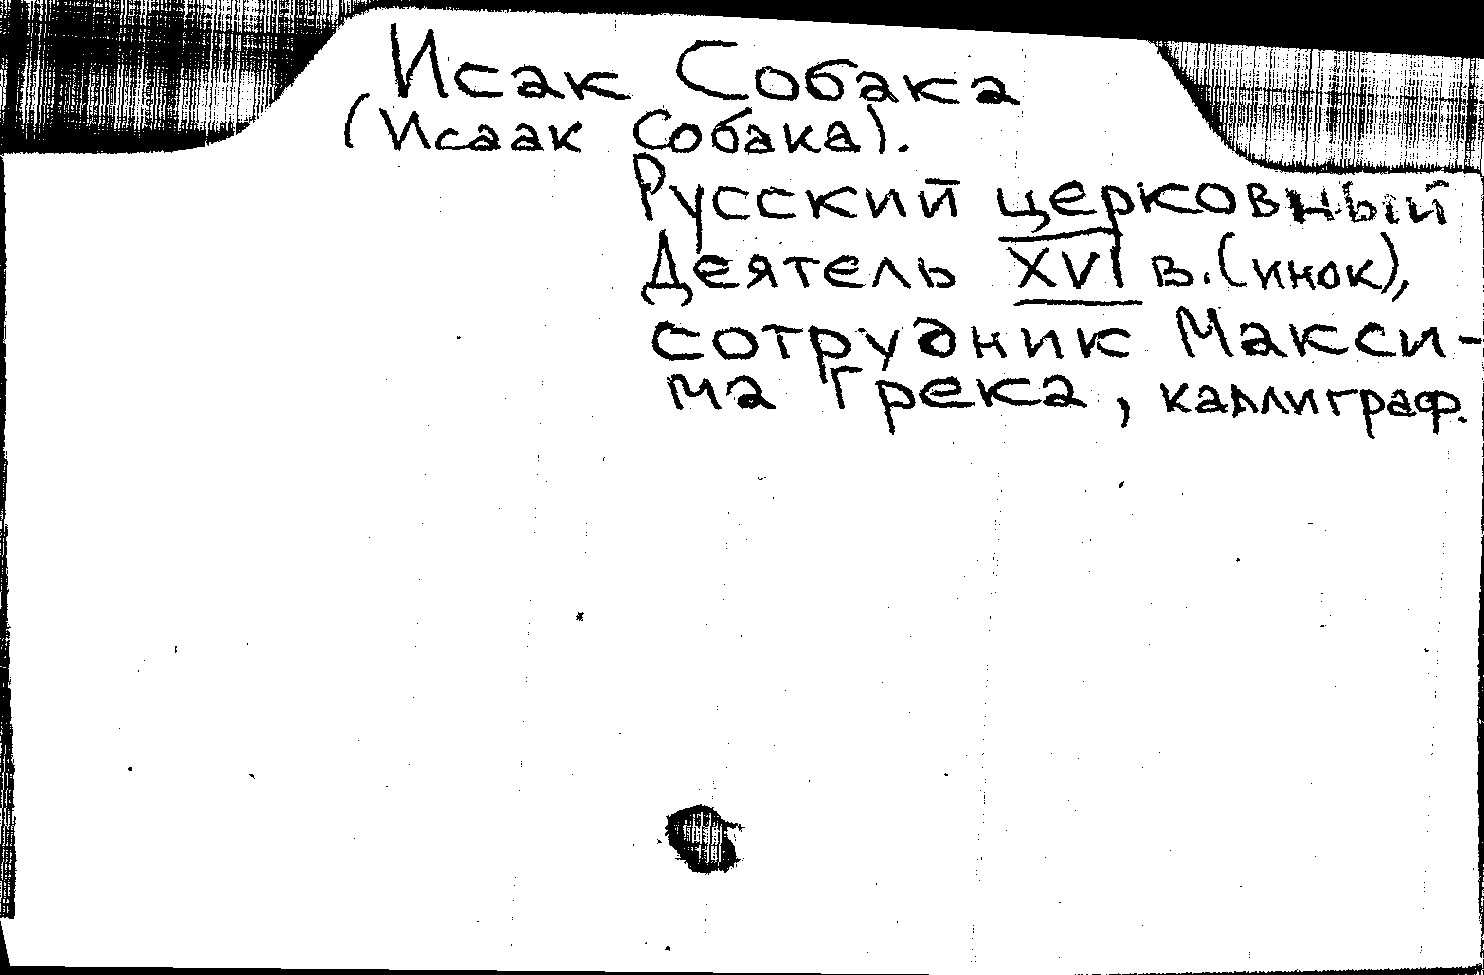 Исак Собака
(Исаак Собака).
Русский церковный
деятель XVI в. (инок),
сотрудник Макси-
ма Грека, каллиграф.